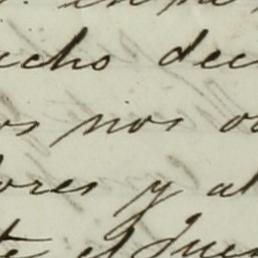 echo dec
os nos o
ores y al
te el Jue